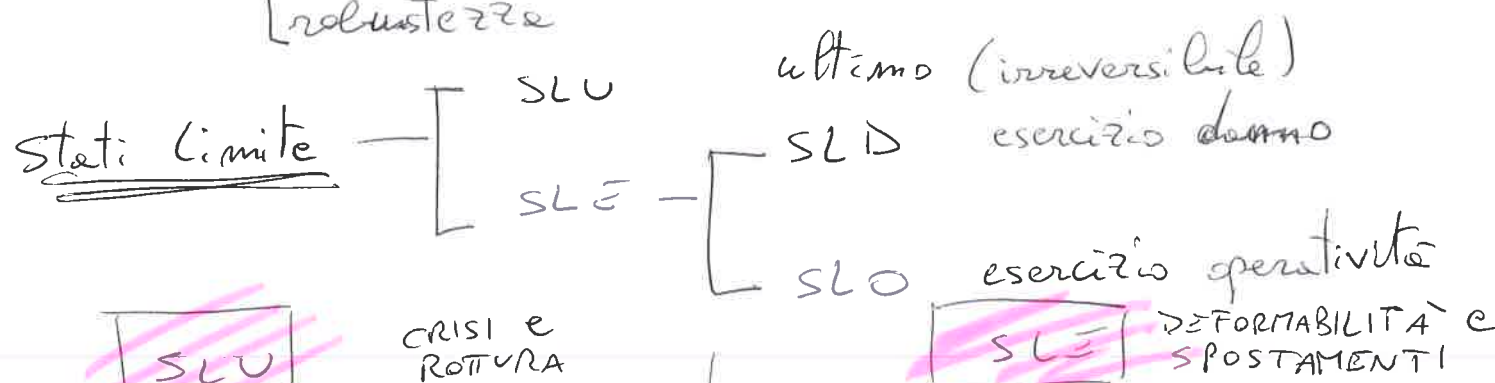 robustezza
SLU ultimo (irreversibile)
Stati limite
SLD esercizio danno
SLE
SLO esercizio operatività
SLU CRISI e ROTTURA
SLE DEFORMABILITÀ e SPOSTAMENTI